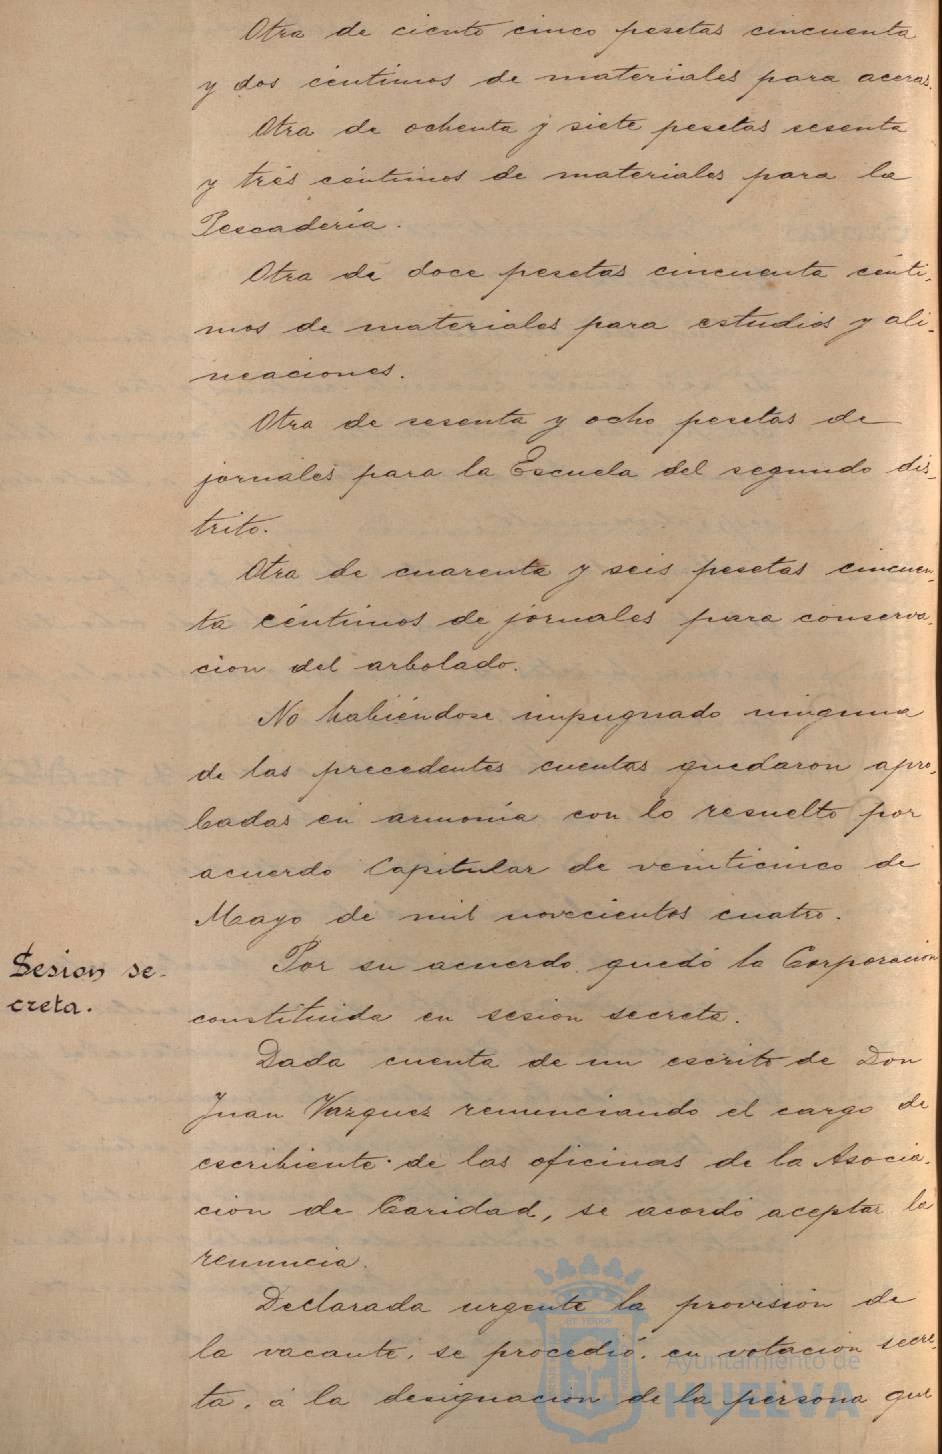 Otra de ciento cinco pesetas cincuenta
y dos céntimos de materiales para aceras.
Otra de ochenta y siete pesetas sesenta
y tres céntimos de materiales para la
Pescadería.
Otra de doce pesetas cincuenta cénti-
mos de materiales para estudios y ali-
neaciones.
Otra de sesenta y ocho pesetas de
jornales para la Escuela del segundo dis-
trito.
Otra de cuarenta y seis pesetas cincuen-
ta céntimos de jornales para conserva-
cion del arbolado.
No habiéndose impugnado ninguna
de las precedentes cuentas quedaron apro-
badas en armonía con lo resuelto por
acuerdo Capitular de veinticinco de
Mayo de mil novecientos cuatro.
Sesion se-
creta.
Por su acuerdo quedó la Corporación
constituida en sesion secreta.
Dada cuenta de un escrito de Don
Juan Vazquez renunciando el cargo de
escribiente de las oficinas de la Asocia-
ción de Caridad, se acordó aceptar la
renuncia.
Declarada urgente la provisión de
la vacante, se procedió, en votación secre-
ta, á la designacion de la persona que
Ayuntamiento de
HUELVA